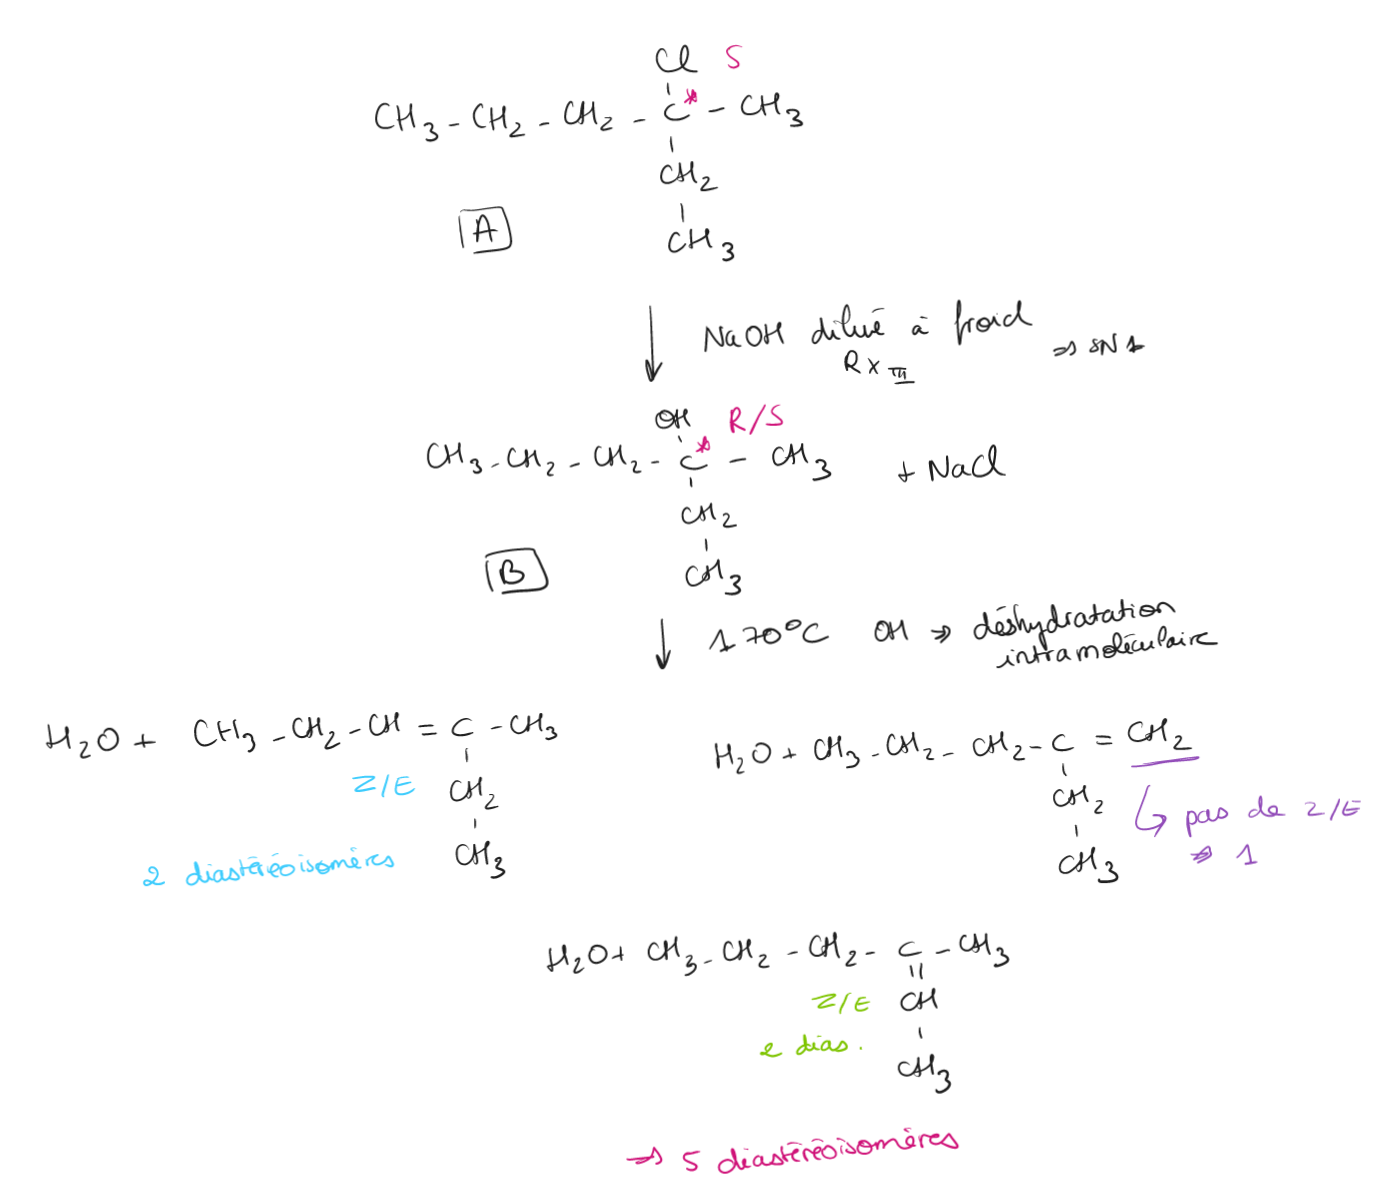 Cl S
CH3 - CH2 - CH2 - C* - CH3
CH2
CH3
A
NaOH dilué à froid
RX III
⇒ SN1
OH R/S
CH3 - CH2 - CH2 - C* - CH3 + NaCl
CH2
CH3
B
170°C OH ⇒ déshydratation
intramoléculaire
H2O + CH3 - CH2 - CH = C - CH3
Z/E CH2
CH3
2 diastéréoisomères
H2O + CH3 - CH2 - CH2 - C = CH2
CH2
CH3
↳ pas de Z/E
⇒ 1
H2O + CH3 - CH2 - CH2 - C - CH3
Z/E CH
2 dias.
CH3
⇒ 5 diastéréoisomères